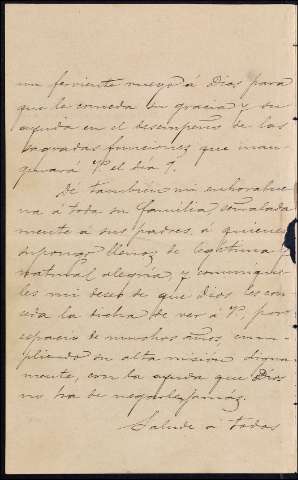 un ferviente ruego á Dios para
que le conceda su gracia y su
ayuda en el desempeño de las
sagradas funciones que inau-
gurará V. el día 1.
Dé también mi enhorabue
na á toda su familia señalada
mente á sus padres, á quienes
supongo llenos de legítima y
natural alegría, y comuníque
les mi deseo de que Dios les con
ceda la dicha de ver á V. por
espacio de muchos años, cum-
pliendo su alta misión digna
mente, con la ayuda que Dios
no ha de negarle jamás.
Salude a todos